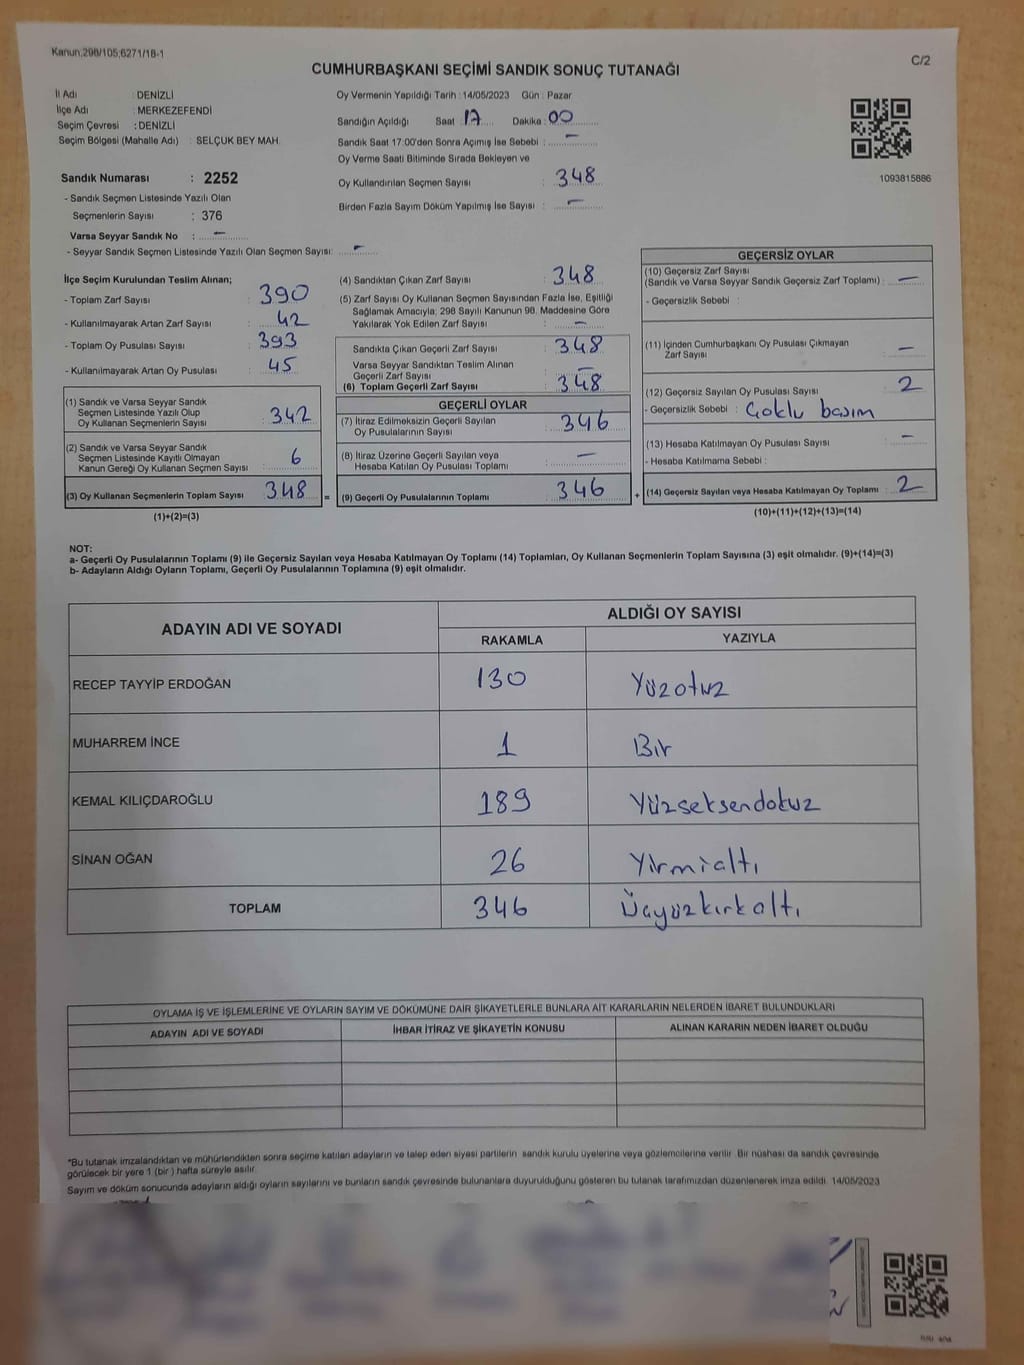 Kanun;298/105;6271/18-1
C/2
CUMHURBAŞKANI SEÇİMİ SANDIK SONUÇ TUTANAĞI
İl Adı : DENİZLİ
İlçe Adı : MERKEZEFENDİ
Seçim Çevresi : DENİZLİ
Seçim Bölgesi (Mahalle Adı) : SELÇUK BEY MAH.
Sandık Numarası : 2252
- Sandık Seçmen Listesinde Yazılı Olan
Seçmenlerin Sayısı : 376
Varsa Seyyar Sandık No : —
- Seyyar Sandık Seçmen Listesinde Yazılı Olan Seçmen Sayısı: —
Oy Vermenin Yapıldığı Tarih : 14/05/2023 Gün : Pazar
Sandığın Açıldığı Saat : 17 Dakika : 00
Sandık Saat 17:00'den Sonra Açımış İse Sebebi : —
Oy Verme Saati Bitiminde Sırada Bekleyen ve
Oy Kullandırılan Seçmen Sayısı : 348
Birden Fazla Sayım Döküm Yapılmış İse Sayısı : —
1093815886
İlçe Seçim Kurulundan Teslim Alınan;
- Toplam Zarf Sayısı : 390
- Kullanılmayarak Artan Zarf Sayısı : 42
- Toplam Oy Pusulası Sayısı : 393
- Kullanılmayarak Artan Oy Pusulası : 45
(1) Sandık ve Varsa Seyyar Sandık
Seçmen Listesinde Yazılı Olup
Oy Kullanan Seçmenlerin Sayısı : 342
(2) Sandık ve Varsa Seyyar Sandık
Seçmen Listesinde Kayıtlı Olmayan
Kanun Gereği Oy Kullanan Seçmen Sayısı : 6
(3) Oy Kullanan Seçmenlerin Toplam Sayısı : 348 =
(1)+(2)=(3)
(4) Sandıktan Çıkan Zarf Sayısı : 348
(5) Zarf Sayısı Oy Kullanan Seçmen Sayısından Fazla İse, Eşitliği
Sağlamak Amacıyla; 298 Sayılı Kanunun 98. Maddesine Göre
Yakılarak Yok Edilen Zarf Sayısı : —
Sandıkta Çıkan Geçerli Zarf Sayısı : 348
Varsa Seyyar Sandıktan Teslim Alınan
Geçerli Zarf Sayısı : —
(6) Toplam Geçerli Zarf Sayısı : 348
GEÇERLİ OYLAR
(7) İtiraz Edilmeksizin Geçerli Sayılan
Oy Pusulalarının Sayısı : 346
(8) İtiraz Üzerine Geçerli Sayılan veya
Hesaba Katılan Oy Pusulası Toplamı : —
(9) Geçerli Oy Pusulalarının Toplamı : 346 +
GEÇERSİZ OYLAR
(10) Geçersiz Zarf Sayısı
(Sandık ve Varsa Seyyar Sandık Geçersiz Zarf Toplamı) : —
- Geçersizlik Sebebi :
(11) İçinden Cumhurbaşkanı Oy Pusulası Çıkmayan
Zarf Sayısı : —
(12) Geçersiz Sayılan Oy Pusulası Sayısı : 2
- Geçersizlik Sebebi : Çoklu basım
(13) Hesaba Katılmayan Oy Pusulası Sayısı : —
- Hesaba Katılmama Sebebi :
(14) Geçersiz Sayılan veya Hesaba Katılmayan Oy Toplamı : 2
(10)+(11)+(12)+(13)=(14)
NOT:
a- Geçerli Oy Pusulalarının Toplamı (9) ile Geçersiz Sayılan veya Hesaba Katılmayan Oy Toplamı (14) Toplamları, Oy Kullanan Seçmenlerin Toplam Sayısına (3) eşit olmalıdır. (9)+(14)=(3)
b- Adayların Aldığı Oyların Toplamı, Geçerli Oy Pusulalarının Toplamına (9) eşit olmalıdır.
ADAYIN ADI VE SOYADI
ALDIĞI OY SAYISI
RAKAMLA YAZIYLA
RECEP TAYYİP ERDOĞAN 130 Yüzotuz
MUHARREM İNCE 1 Bir
KEMAL KILIÇDAROĞLU 189 Yüzseksendokuz
SİNAN OĞAN 26 Yirmialtı
TOPLAM 346 Üçyüzkırkaltı
OYLAMA İŞ VE İŞLEMLERİNE VE OYLARIN SAYIM VE DÖKÜMÜNE DAİR ŞİKAYETLERLE BUNLARA AİT KARARLARIN NELERDEN İBARET BULUNDUKLARI
ADAYIN ADI VE SOYADI İHBAR İTİRAZ VE ŞİKAYETİN KONUSU ALINAN KARARIN NEDEN İBARET OLDUĞU
*Bu tutanak imzalandıktan ve mühürlendikten sonra seçime katılan adayların ve talep eden siyasi partilerin sandık kurulu üyelerine veya gözlemcilerine verilir. Bir nüshası da sandık çevresinde
görülecek bir yere 1 (bir ) hafta süreyle asılır.
Sayım ve döküm sonucunda adayların aldığı oyların sayılarını ve bunların sandık çevresinde bulunanlara duyurulduğunu gösteren bu tutanak tarafımızdan düzenlenerek imza edildi. 14/05/2023